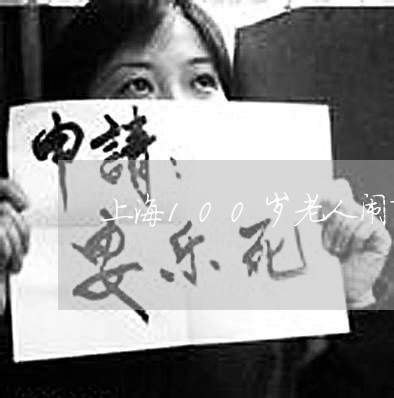 申請：
上海100岁老人闹
安乐死